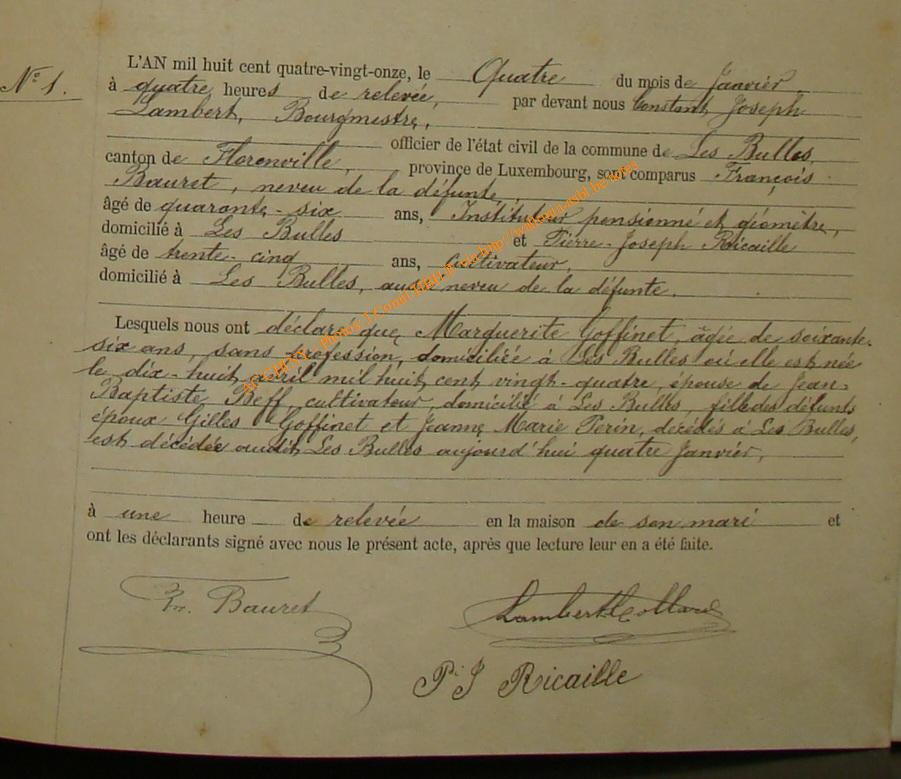 N° 1.
L'AN mil huit cent quatre-vingt-onze, le Quatre du mois de Janvier
à quatre heures de relevée, par devant nous Constant Joseph
Lambert, Bourgmestre,
officier de l'état civil de la commune de Les Bulles,
canton de Florenville, province de Luxembourg, sont comparus François
Bauret, neveu de la défunte,
âgé de quarante-six ans, Instituteur pensionné et géomètre,
domicilié à Les Bulles et Pierre-Joseph Ricaille
âgé de trente-cinq ans, Cultivateur,
domicilié à Les Bulles, aussi neveu de la défunte.
Lesquels nous ont déclaré que Marguerite Goffinet, âgée de soixante-
six ans, sans profession, domiciliée à Les Bulles où elle est née
le dix-huit avril mil huit cent vingt-quatre, épouse de Jean-
Baptiste Beff, cultivateur, domicilié à Les Bulles, fille des défunts
époux Gilles Goffinet et Jeanne Marie Perin, décédés à Les Bulles,
est décédée audit Les Bulles aujourd'hui quatre Janvier,
à une heure de relevée en la maison de son mari et
ont les déclarants signé avec nous le présent acte, après que lecture leur en a été faite.
Fr. Bauret
Lambert Collard
P. J Ricaille